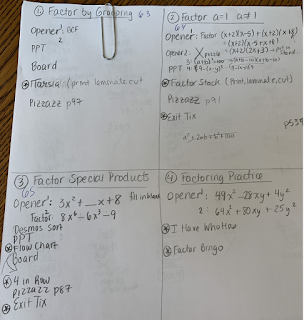 ① Factor by Grouping 6.3
Opener: GCF
PPT
Board
Tarsia: (print laminate, cut
Pizzazz p97
② Factor a=1 a≠1
6.4
Opener: Factor (x+2)(x-5) + (x+2)(x+8)
(x+2)(x-5+x+8)
Opener 2: X puzzle
PPT
Factor Stack (Print, laminate, cut)
Pizzazz p91
Exit Tix
③ Factor Special Products
6.5
Opener: 3x² + __ x + 8 fill in blank
Factor 8x⁶ - 6x³ - 9
Desmos Sort
PPT
Flow Chart
Board
4 in Row
Pizzazz p87
Exit Tix
④ Factoring Practice
Opener: 49x² - 28xy + 4y²
2: 64x² + 80xy + 25y²
I Have Who Has
Factor Bingo